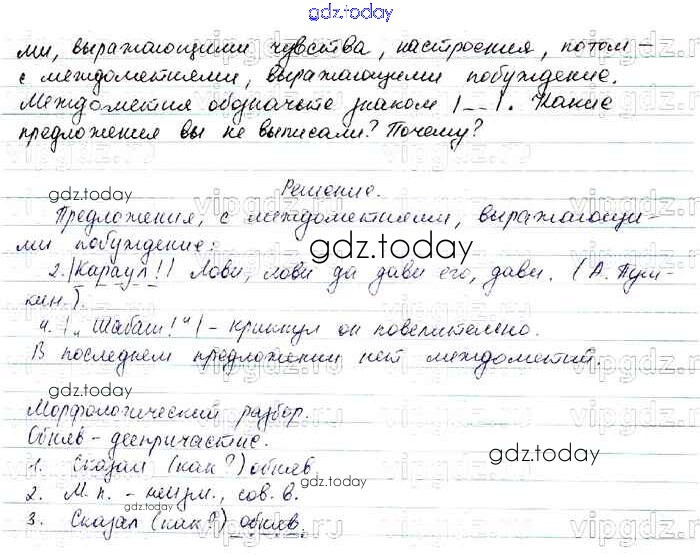 gdz.today
ми, выражающими чувства, настроения, потом –
с междометиями, выражающими побуждение.
Междометия обозначьте знаком |__|. Какие
предложения вы не выписали? Почему?
gdz.today
Решение.
Предложения, с междометиями, выражающи-
ми побуждение:
gdz.today
2. |Караул!| Лови, лови да дави его, дави. (А. Пуш-
кин.).
4. |„Шабаш!“| – крикнул он повелительно.
В последнем предложении нет междометий.
gdz.today
Морфологический разбор.
Обняв – деепричастие.
gdz.today
1. Сказал (как?) обняв
2. М.п. – неизм., сов. в.
gdz.today
3. Сказал (как?) обняв.
vipgdz.ru